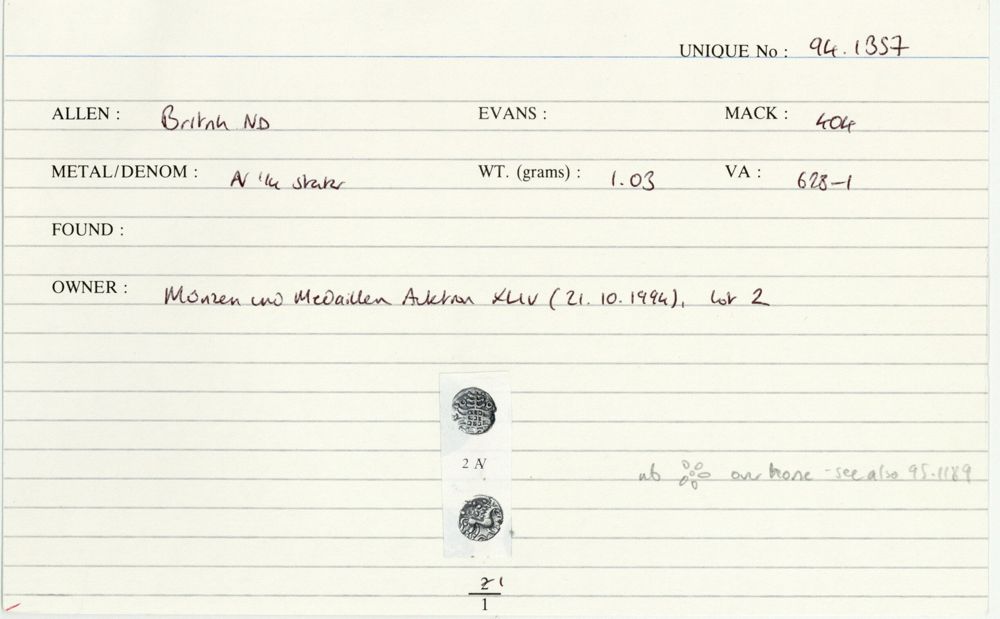 UNIQUE No : 94.1357
ALLEN : British ND EVANS : MACK : 404
METAL/DENOM : AV ¼ stater WT. (grams) : 1.03 VA : 628-1
FOUND :
OWNER : Münzen und Medaillen Auktion XLIV (21.10.1994), lot 2
2 AV
nb over horse - see also 95.1189
2 1
1